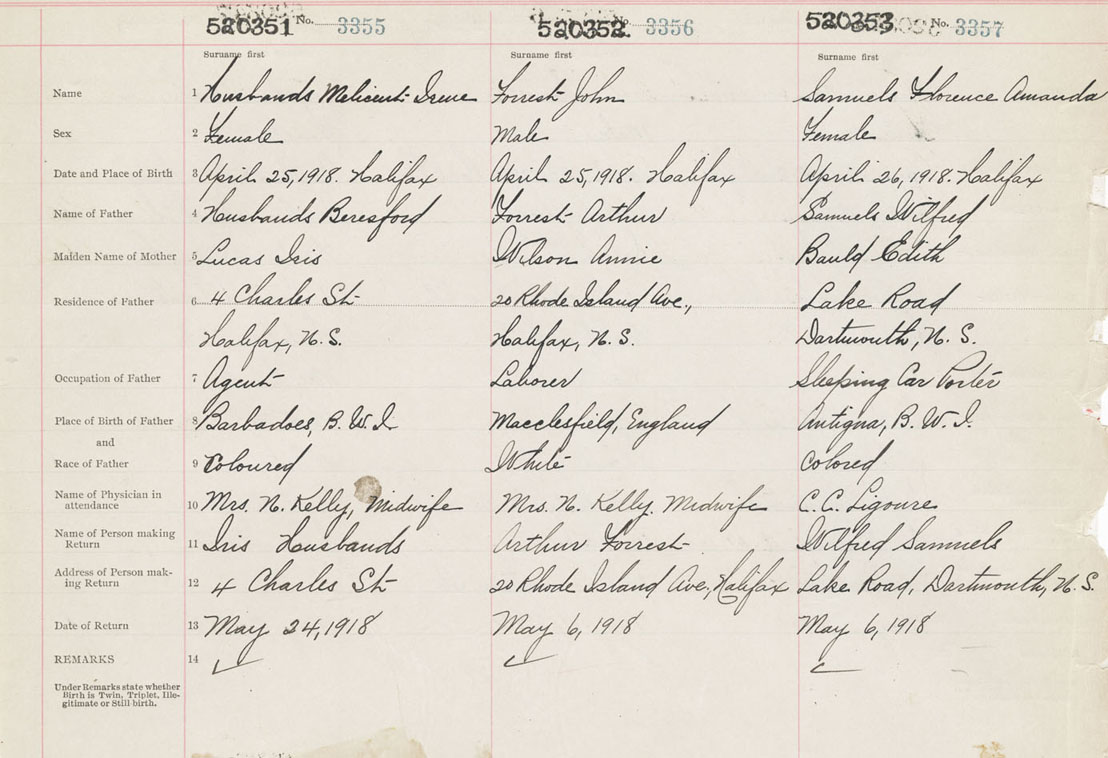 520351 No. 3355 520352 No. 3356 520353 No. 3357
Surname first Surname first Surname first
Name 1 Husbands Melicent Irene Forrest John Samuels Florence Amanda
Sex 2 Female Male Female
Date and Place of Birth 3 April 25, 1918. Halifax April 25, 1918. Halifax April 26, 1918. Halifax
Name of Father 4 Husbands Beresford Forrest Arthur Samuels Wilfred
Maiden Name of Mother 5 Lucas Iris Wilson Annie Bauld Edith
Residence of Father 6 4 Charles St 20 Rhode Island Ave., Lake Road
Halifax, N. S. Halifax, N. S. Dartmouth, N. S.
Occupation of Father 7 Agent Laborer Sleeping Car Porter
Place of Birth of Father 8 Barbadoes, B. W. I. Macclesfield, England Antigua, B. W. I.
and
Race of Father 9 Coloured White Colored
Name of Physician in
attendance 10 Mrs. N. Kelly, Midwife Mrs. N. Kelly. Midwife C. C. Ligoure
Name of Person making
Return 11 Iris Husbands Arthur Forrest Wilfred Samuels
Address of Person mak-
ing Return 12 4 Charles St 20 Rhode Island Ave., Halifax Lake Road, Dartmouth, N. S.
Date of Return 13 May 24, 1918 May 6, 1918 May 6, 1918
REMARKS 14
Under Remarks state whether
Birth is Twin, Triplet, Ille-
gitimate or Still-birth.